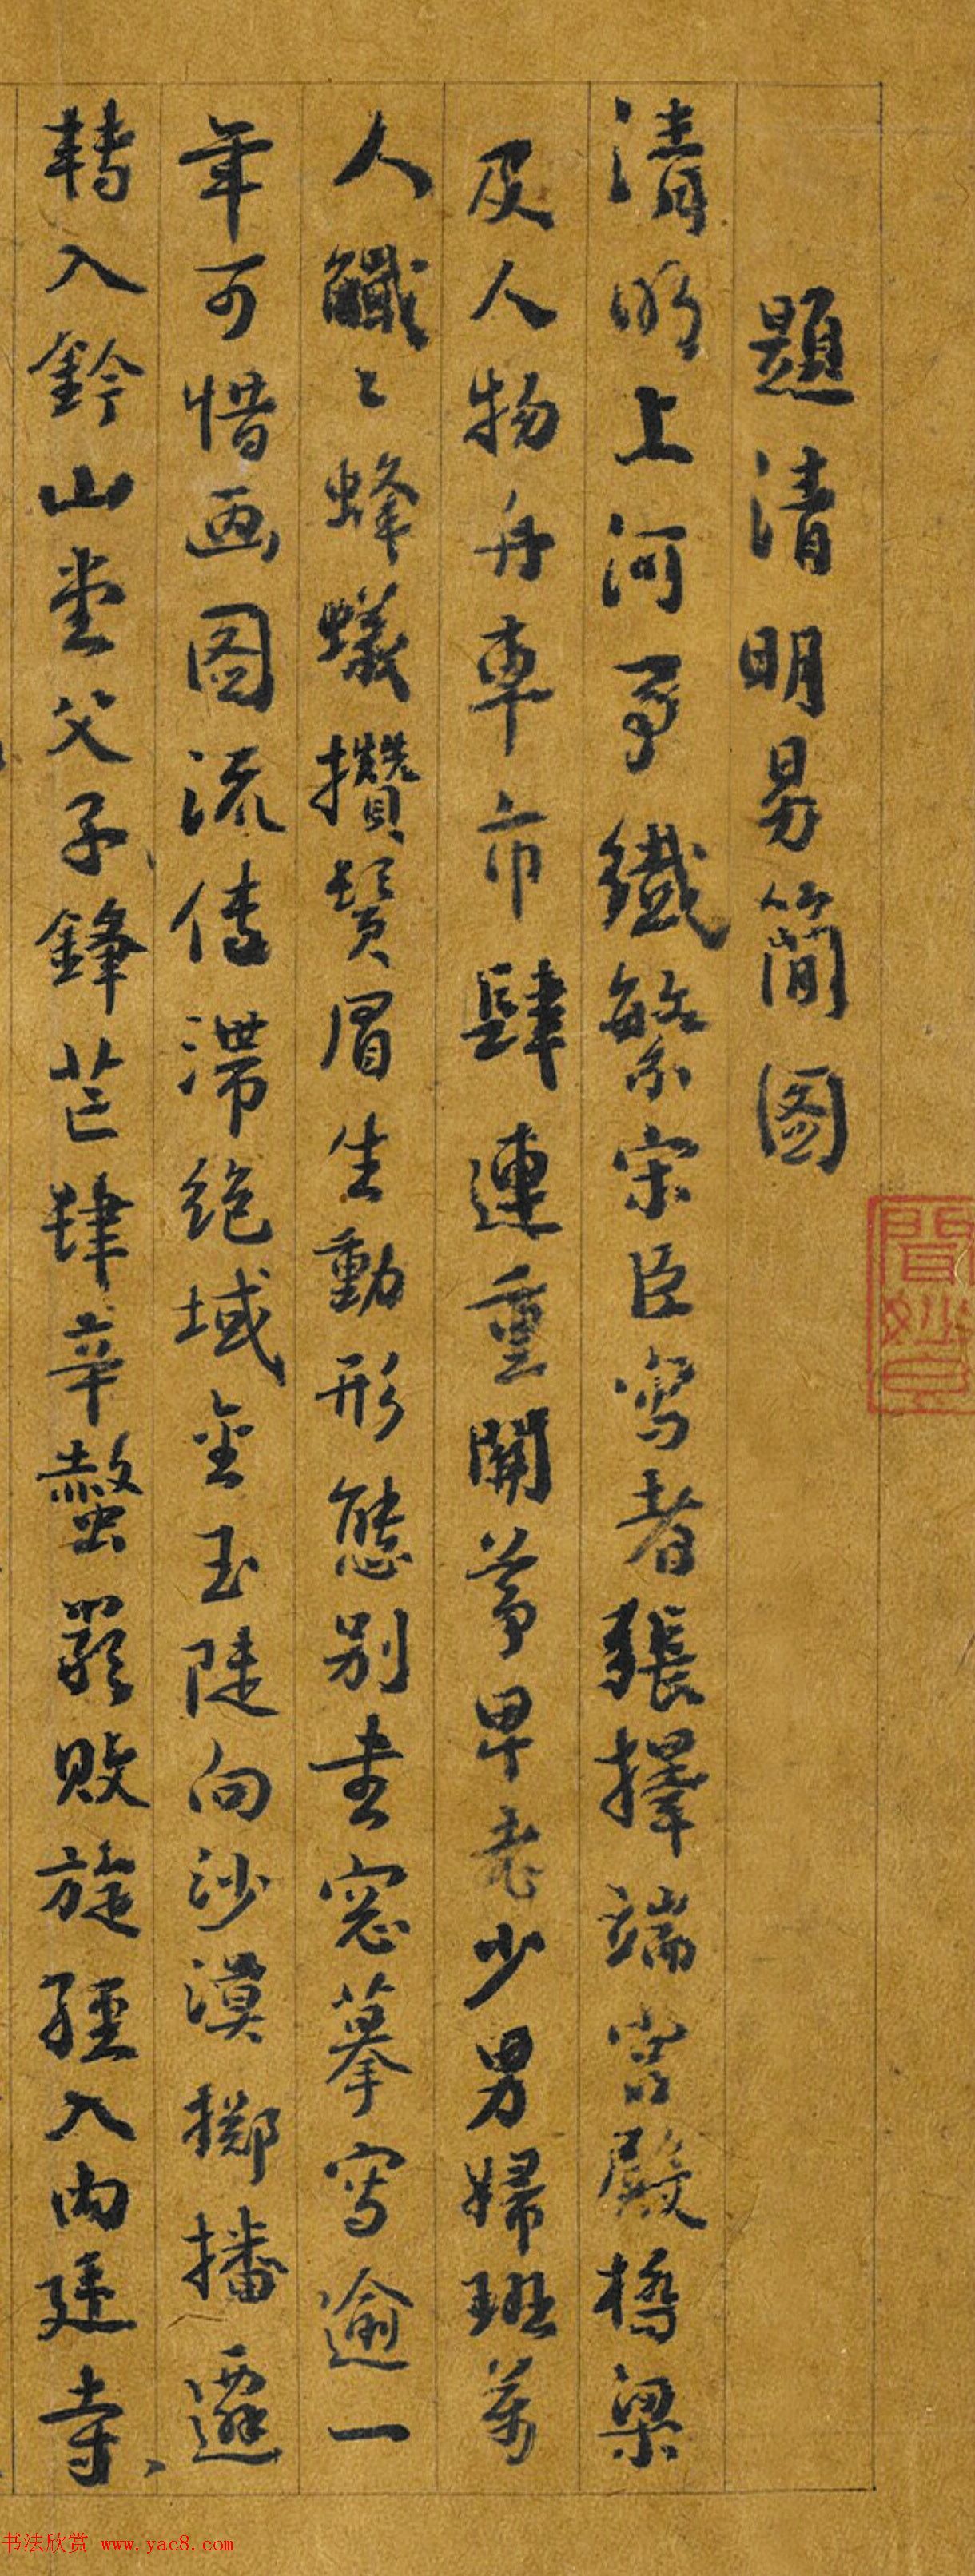 題清明易簡圖
清明上河事纖繁宋臣寫者張擇端宮殿橋梁
及人物舟車市肆連重關尊卑老少男婦班萬
人纖々蜂蟻攢鬓眉生動形態別畫窓摹寫逾一
年可惜画图流傳滯絕域金玉陡向沙漠擲播遷
轉入鈐山堂父子鋒芒肆辛螫嚴敗旋經入内廷寺
書法欣赏 www.yac8.com